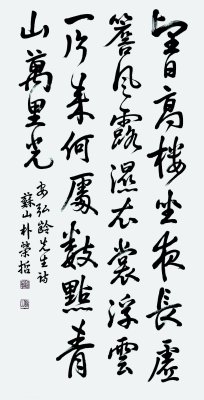 望月高樓坐夜長虛
簷風露濕衣裳浮雲
一片來何處數點青
山萬里光
安弘齡先生詩
蘇山朴榮哲